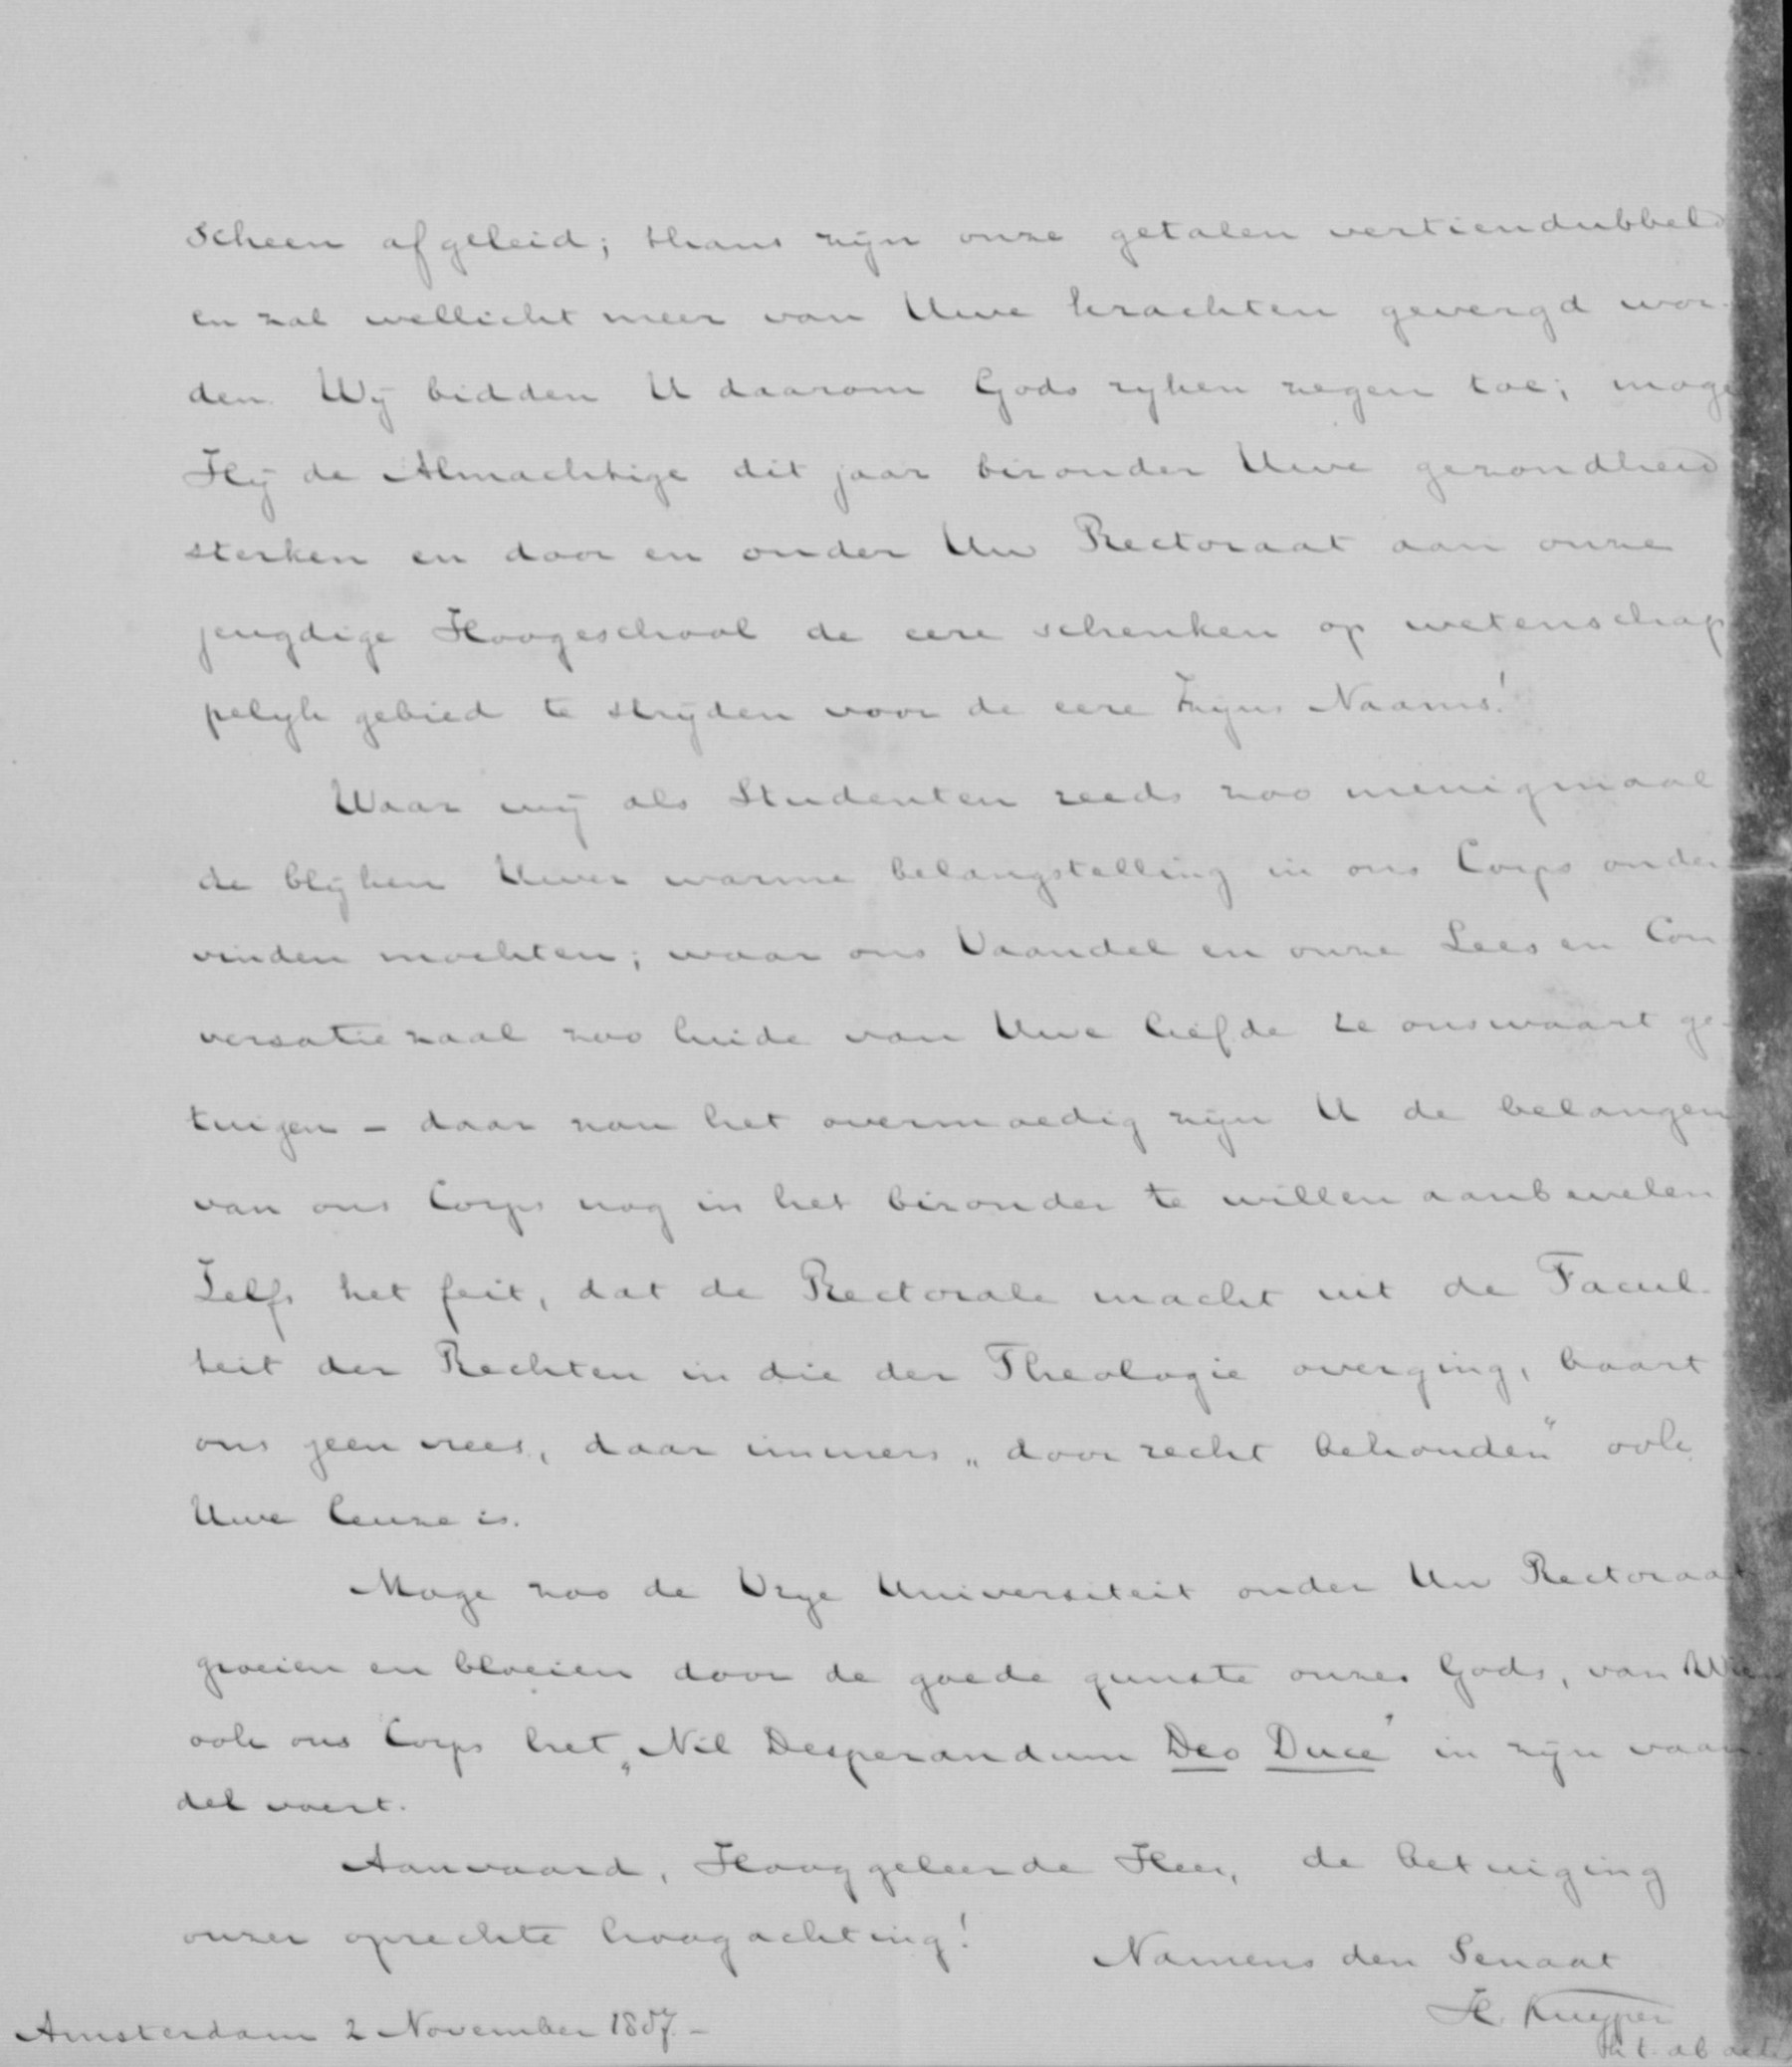 scheen afgeleid; thans zijn onze getalen vertiendubbeld
en zal wellicht meer van Uwe krachten gevergd wor-
den. Wij bidden U daarom Gods rijken zegen toe; moge
Hij de Almachtige dit jaar bizonder Uwe gezondheid
sterken en door en onder Uw Rectoraat aan onze
jeugdige Hoogeschool de eere schenken op wetenschap
pelijk gebied te strijden voor de eere Zijns Naams!
Waar wij als Studenten reeds zoo menigmaal
de blijken Uwer warme belangstelling in ons Corps onder
vinden mochten; waar ons Vaandel en onze Lees en Con
versatiezaal zoo luide van Uwe liefde te onswaart ge-
tuigen - daar zou het overmoedig zijn U de belangen
van ons Corps nog in het bizonder te willen aanbevelen
Zelfs het feit, dat de Rectorale macht uit de Facul-
teit der Rechten in die der Theologie overging, baart
ons geen vrees, daar immers „door recht behouden" ook
Uwe leuze is.
Moge zoo de Vrije Universiteit onder Uw Rectoraat
groeien en bloeien door de goede gunste onzes Gods, van Wien
ook ons Corps het „Nil Desperandum Deo Duce" in zijn vaan-
del voert.
Aanvaard, Hooggeleerde Heer, de betuiging
onzer oprechte hoogachting!
Namens den Senaat
H. Kuyper
h. t. ab actis
Amsterdam 2 November 1887.-